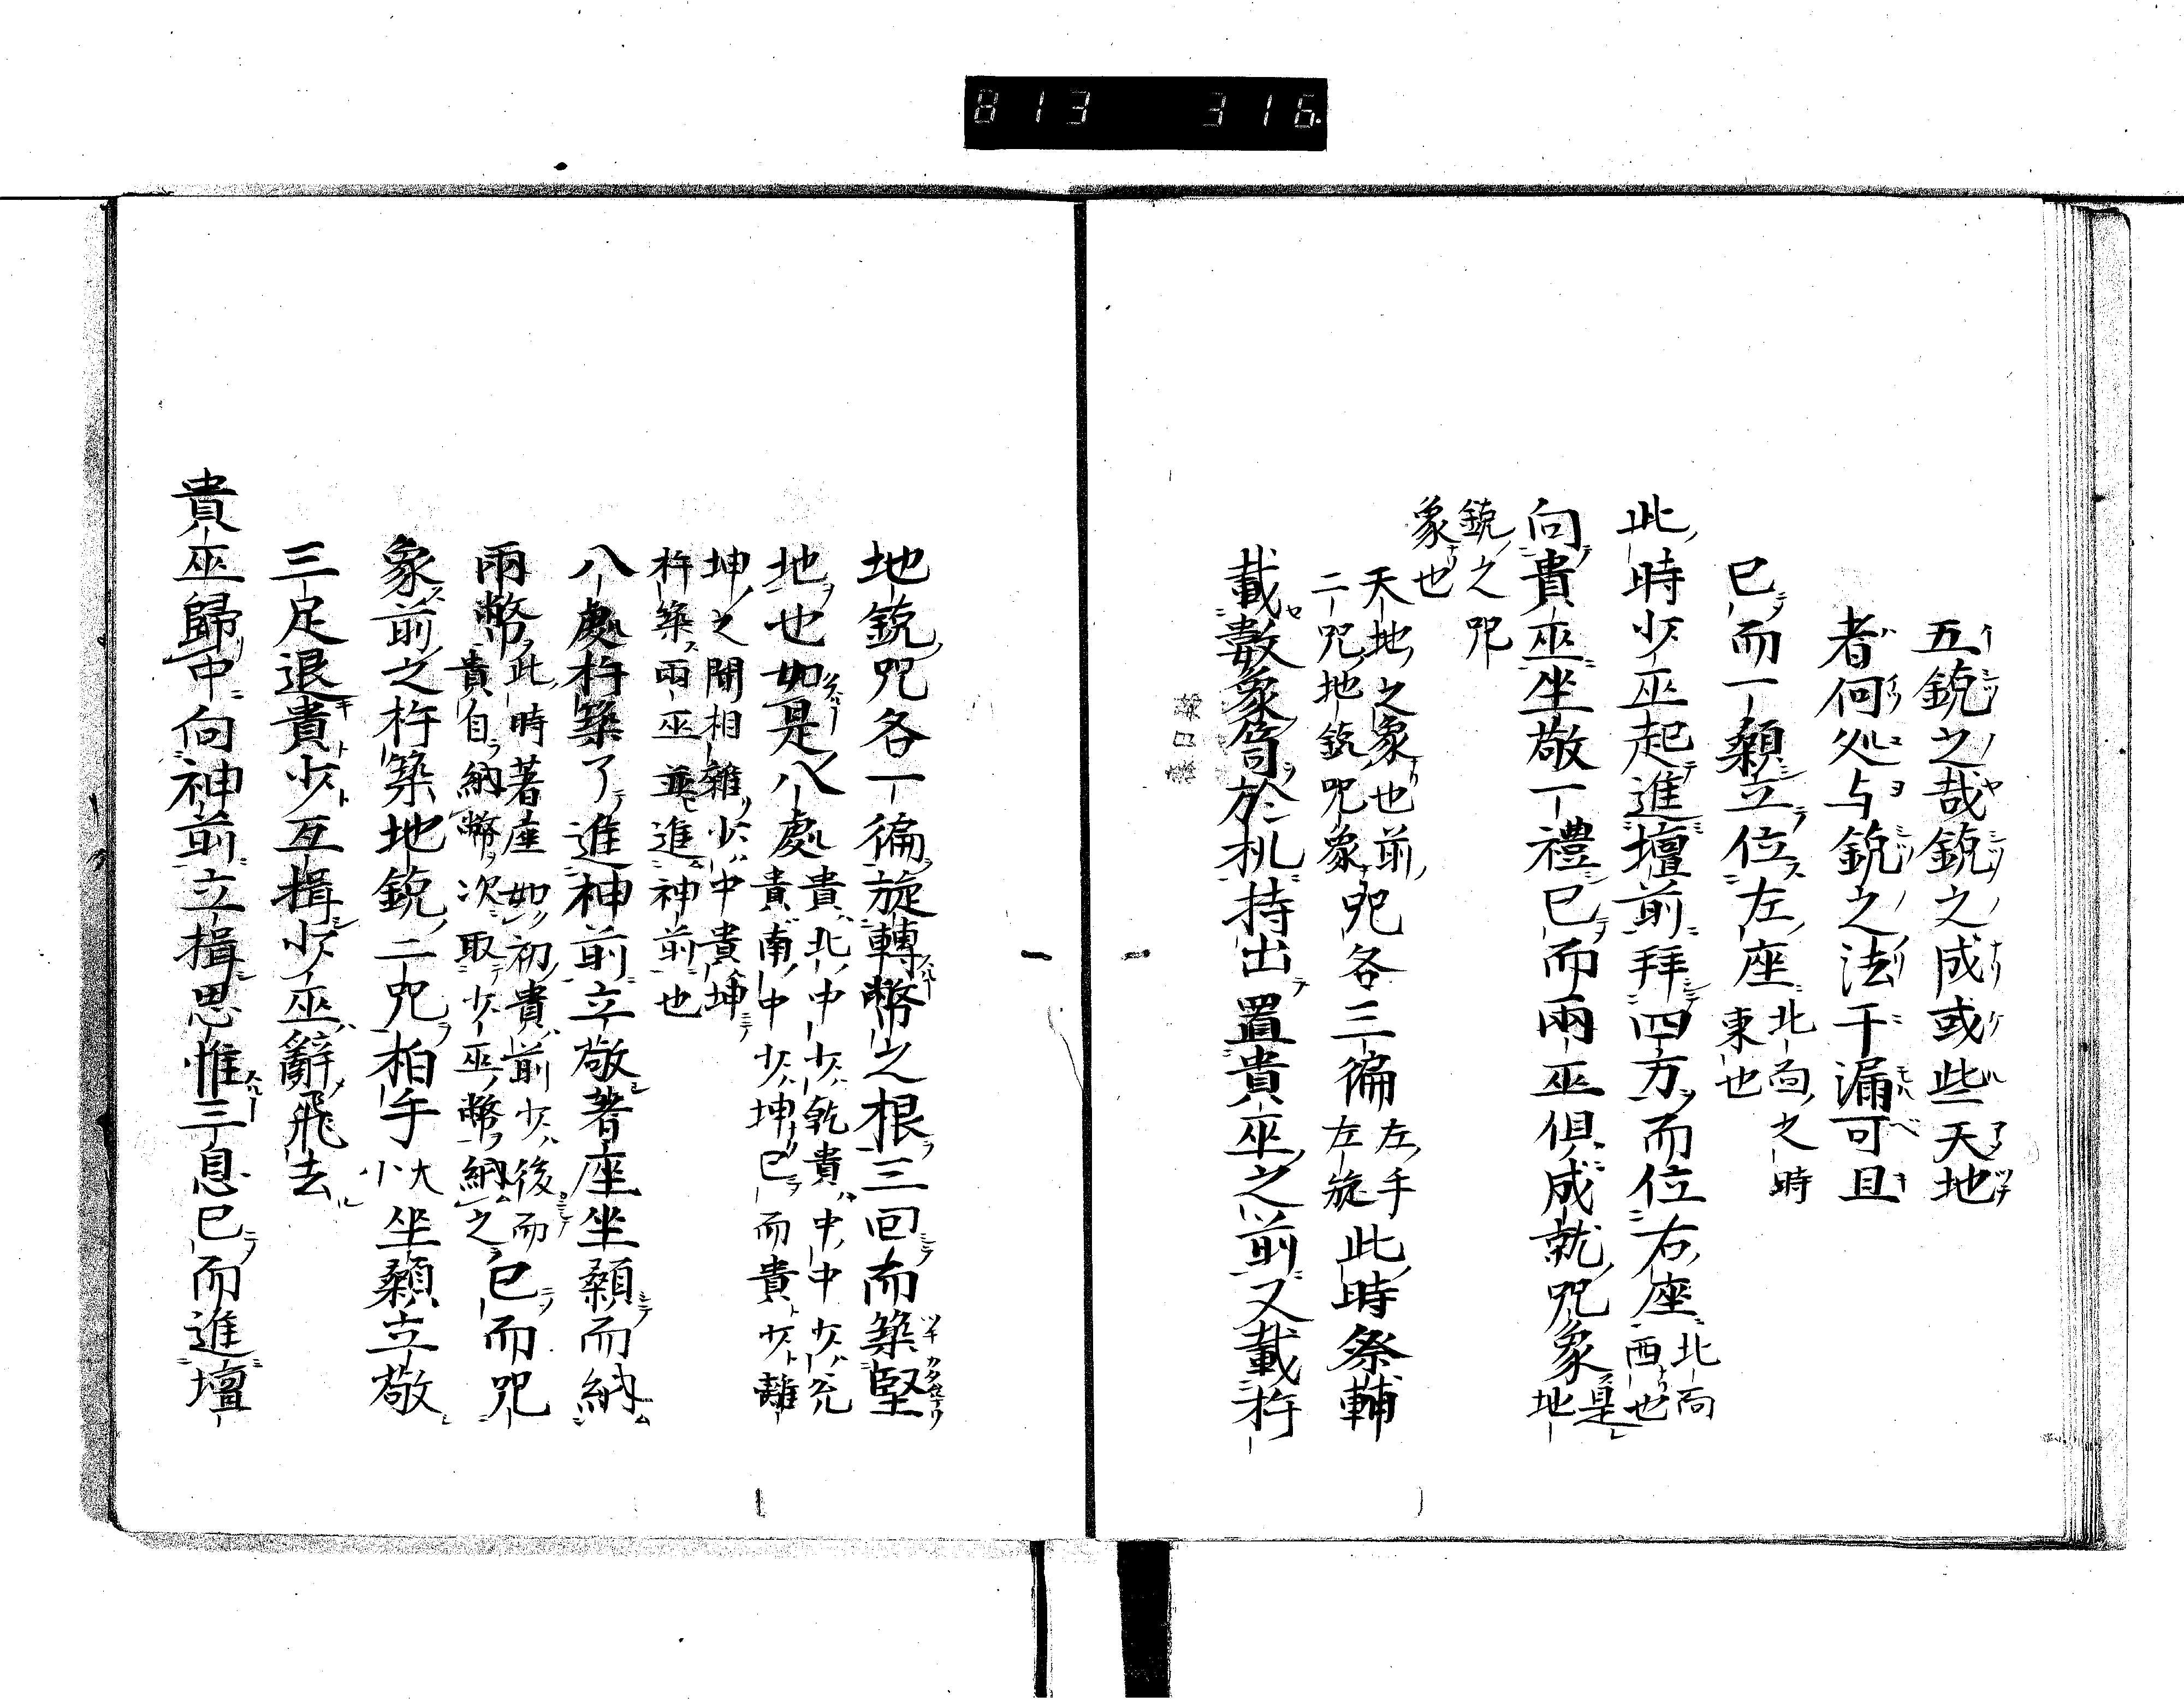 813 316
五鋭之哉鋭之成或些天地
者何処与鋭之法千漏可且
已而一顙立位左座北向之時
東也
此時少巫起進壇前拜四方而位右座北向
西也
向貴巫坐敬一禮已而兩巫俱成就咒象是
地
鋭之咒
象也
天地之象也前
二咒地鋭咒象
咒各三徧左手
左旋
此時祭輔
載數象筒於机持出置貴巫之前又載杵
地鋭咒各一徧旋轉幣之根三回而築堅
地也如是八處貴北中少乾貴中中少兌
貴南中少坤已而貴少離
坤之間相雜少中貴坤
杵築兩巫並進神前也
八處杵築了進神前立敬著座坐顙而納
兩幣此時著座如初貴前少後而
貴自納幣次取少巫幣納之
已而咒
象前之杵築地鋭二咒柏手大
小
坐顙立敬
三足退貴少互揖少巫辭飛去
貴巫歸中向神前立揖思惟三息已而進壇